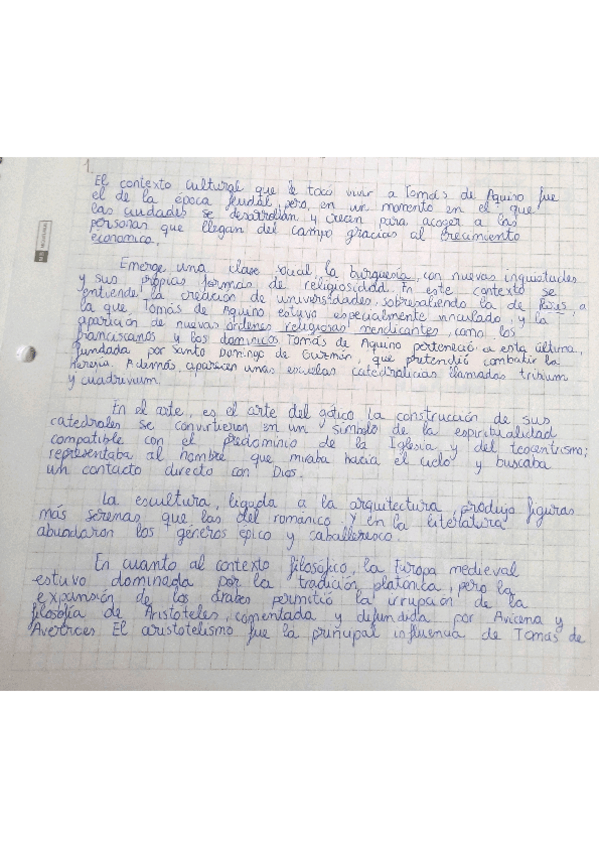 1
El contexto cultural que le tocó vivir a Tomás de Aquino fue
el de la epoca feudal, pero, en un momento en el que
las ciudades se desarrollan y crecen para acoger a las
personas que llegan del campo gracias al crecimiento
económico.
Emerge una clase social, la burguesía, con nuevas inquietudes
y sus propias formas de religiosidad. En este contexto se
entiende la creación de universidades, sobresaliendo la de París, a
la que, Tomás de Aquino estuvo especialmente vinculado, y la
aparición de nuevas órdenes religiosas mendicantes, como los
franciscanos y los dominicos. Tomás de Aquino perteneció a esta última,
fundada por Santo Domingo de Guzmán, que pretendió combatir la
herejía. Además, aparecen unas escuelas catedralicias llamadas trivium
y cuadrivium.
En el arte, es el arte del gótico la construcción de sus
catedrales se convirtieron en un símbolo de la espiritualidad
compatible con el predominio de la Iglesia y del teocentrismo;
representaba al hombre que miraba hacia el cielo y buscaba
un contacto directo con Dios.
La escultura, ligada a la arquitectura, produjo figuras
más serenas que las del románico y en la literatura
abundaron los géneros épico y caballeresco.
En cuanto al contexto filosófico, la Europa medieval
estuvo dominada por la tradición platónica, pero la
expansión de los árabes permitió la irrupción de la
filosofía de Aristóteles, comentada y difundida por Avicena y
Averroes. El aristotelismo fue la principal influencia de Tomás de